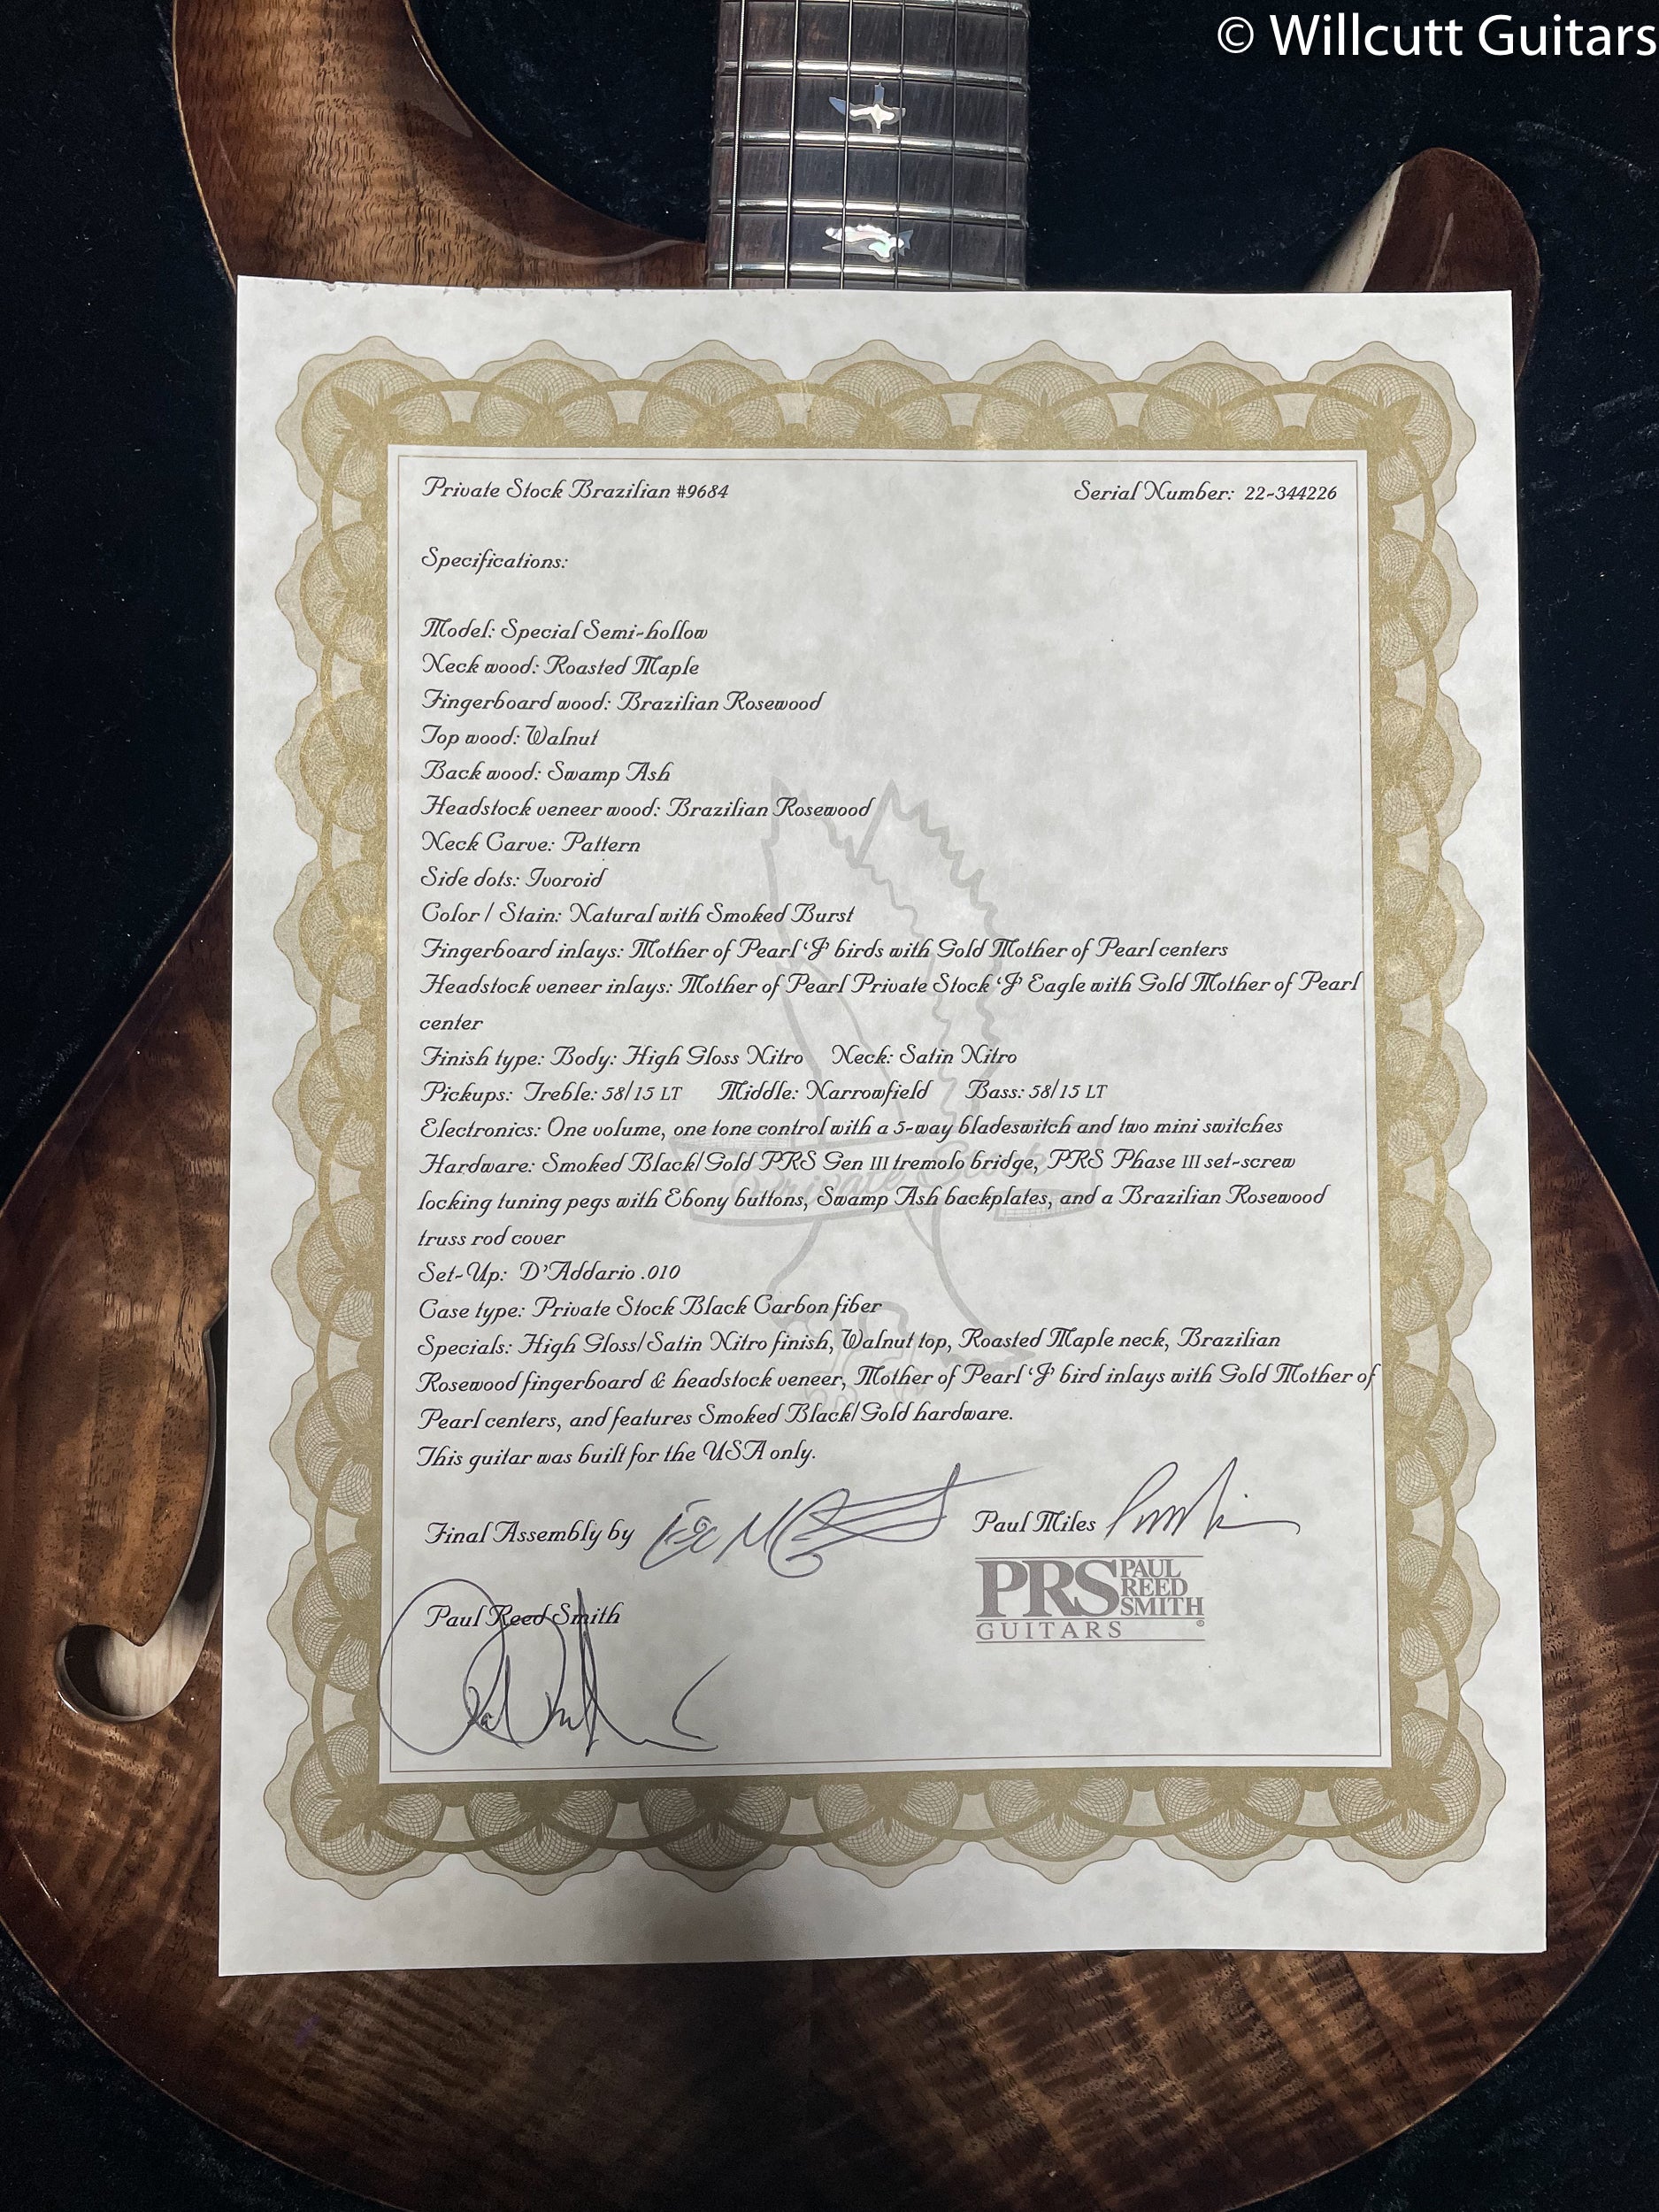 © Willcutt Guitars
Private Stock Brazilian #9684 Serial Number: 22-344226
Specifications:
Model: Special Semi-hollow
Neck wood: Roasted Maple
Fingerboard wood: Brazilian Rosewood
Top wood: Walnut
Back wood: Swamp Ash
Headstock veneer wood: Brazilian Rosewood
Neck Carve: Pattern
Side dots: Ivoroid
Color / Stain: Natural with Smoked Burst
Fingerboard inlays: Mother of Pearl 'J' birds with Gold Mother of Pearl centers
Headstock veneer inlays: Mother of Pearl Private Stock 'J' Eagle with Gold Mother of Pearl
center
Finish type: Body: High Gloss Nitro Neck: Satin Nitro
Pickups: Treble: 58/15 LT Middle: Narrowfield Bass: 58/15 LT
Electronics: One volume, one tone control with a 5-way bladeswitch and two mini switches
Hardware: Smoked Black/Gold PRS Gen III tremolo bridge, PRS Phase III set-screw
locking tuning pegs with Ebony buttons, Swamp Ash backplates, and a Brazilian Rosewood
truss rod cover
Set-Up: D'Addario .010
Case type: Private Stock Black Carbon fiber
Specials: High Gloss/Satin Nitro finish, Walnut top, Roasted Maple neck, Brazilian
Rosewood fingerboard & headstock veneer, Mother of Pearl 'J' bird inlays with Gold Mother of
Pearl centers, and features Smoked Black/Gold hardware.
This guitar was built for the USA only.
Final Assembly by Paul Miles
PRS PAUL REED SMITH
GUITARS
Paul Reed Smith